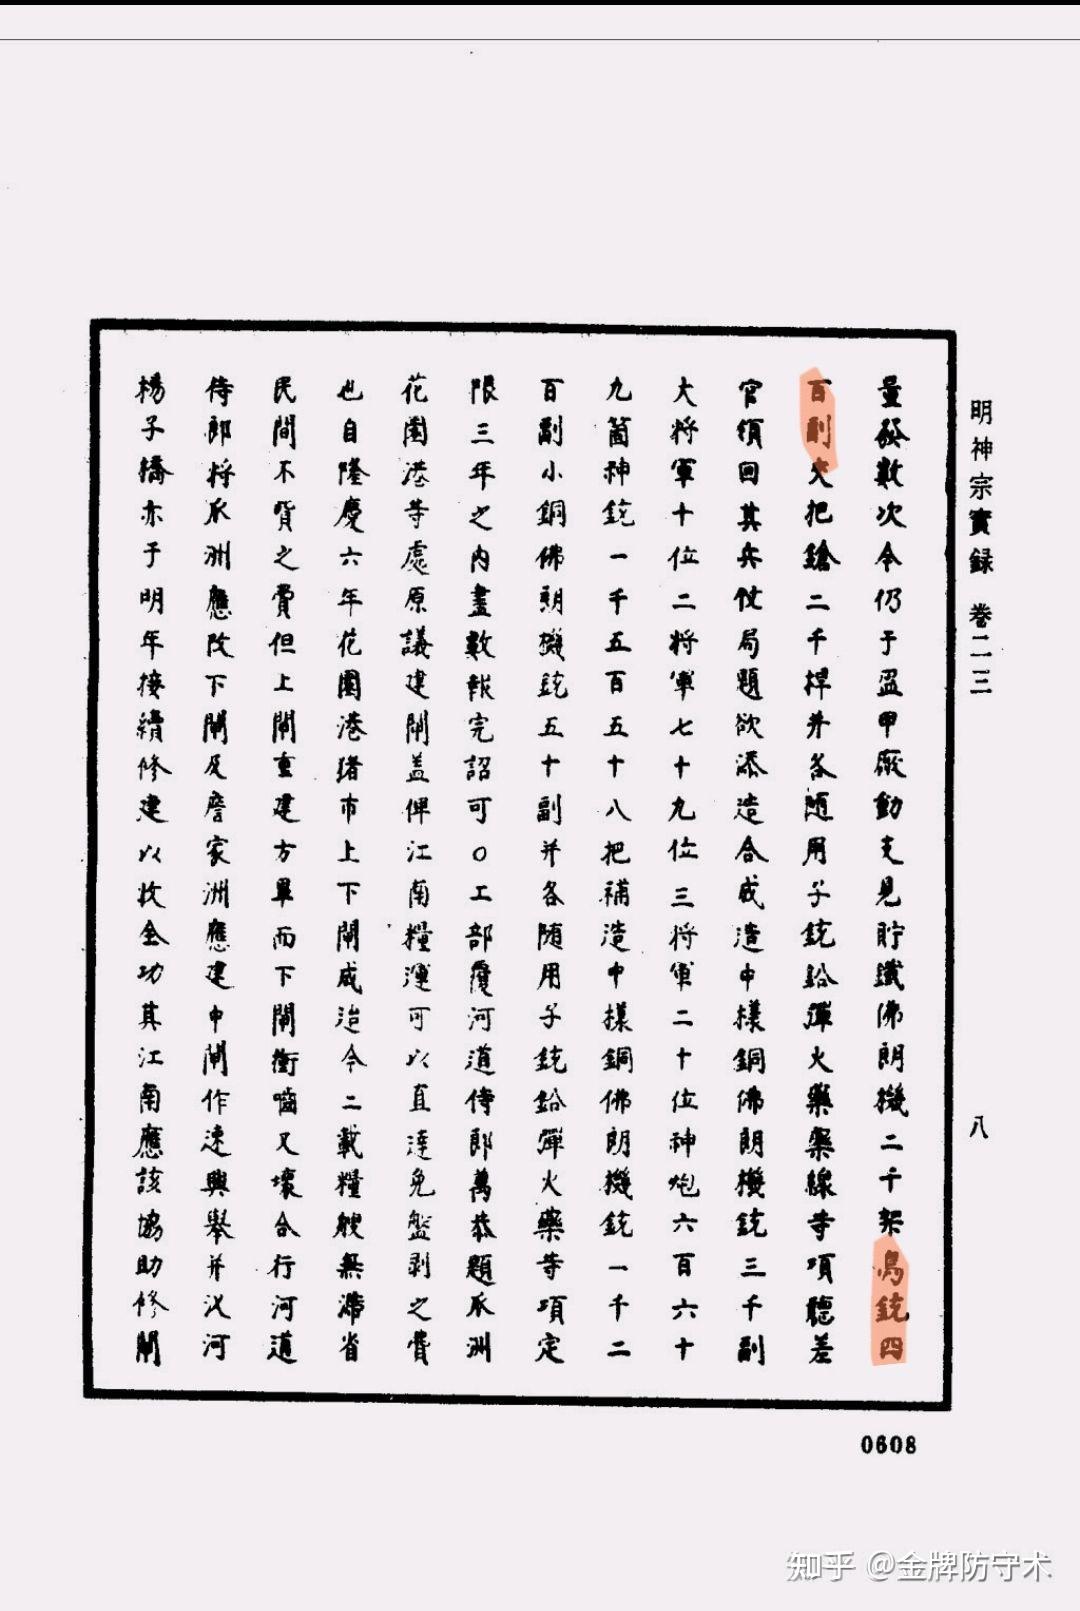 明神宗實録 卷二三
八
量發數次令仍于盔甲厰動支見貯鐵佛朗機二千架鳥銃四
百副夾把鎗二千桿并各随用子銃鉛彈火藥藥線等項聽差
官領回其兵仗局題欲添造合成造中樣銅佛朗機銃三千副
大將軍十位二將軍七十九位三將軍二十位神炮六百六十
九箇神銃一千五百五十八把補造中樣銅佛朗機銃一千二
百副小銅佛朗機銃五十副并各随用子銃鉛彈火藥等項定
限三年之内盡數報完詔可○工部覆河道侍郎萬恭題瓜洲
花園港等處原議建閘盖俾江南糧運可以直達免盤剥之費
也自隆慶六年花園港猪市上下閘成治今二載糧艘無滯省
民間不貲之費但上閘重建方畢而下閘衝嚙又壞合行河道
侍郎將瓜洲應改下閘及詹家洲應建中閘作速興舉并沈河
楊子橋亦于明年接續修建以收全功其江南應該協助修閘
0608
知乎 @金牌防守术